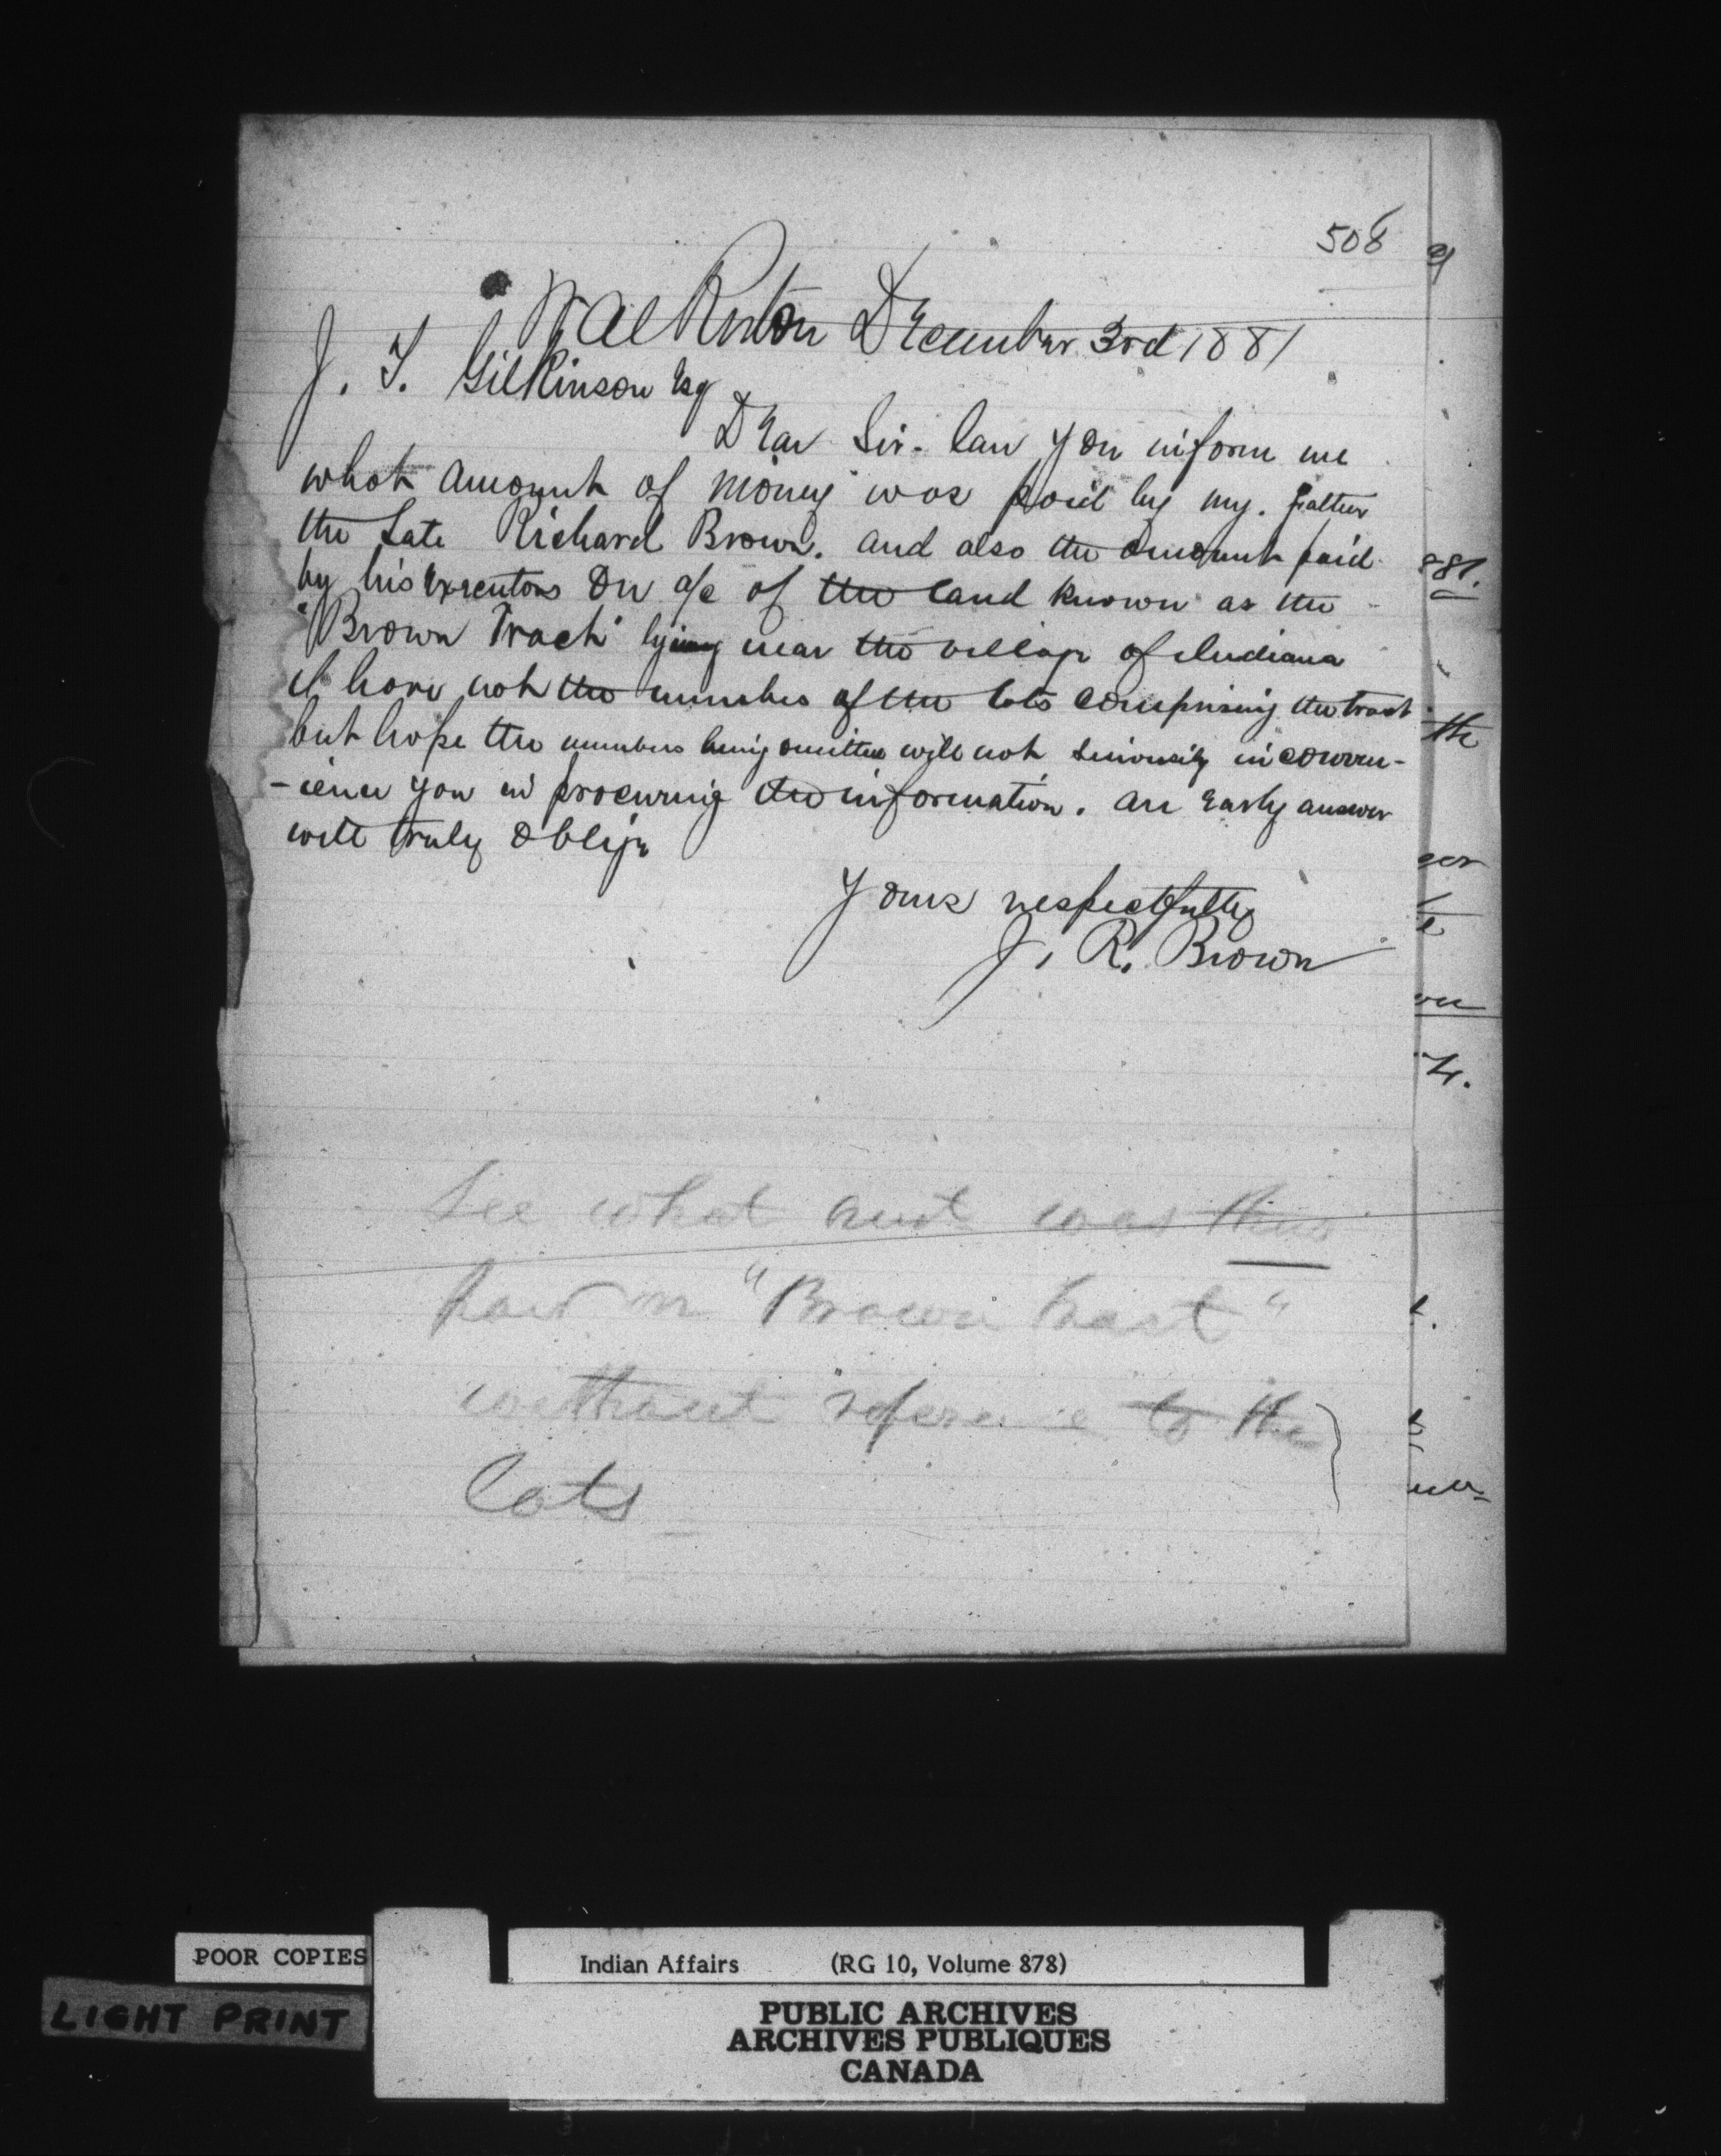 508
Walkerton December 3rd 1881
J. T. Gilkinson Esq
Dear Sir. Can you inform me
what amount of money was paid by my father
the Late Richard Brown. and also the amount paid
by his Executors On a/c of the land known as the
"Brown Tract" lying near the village of Indiana
I have not the numbers of the lots comprising the tract
but hope the numbers being omitted will not seriously inconven-
-ience you in procuring the information. An Early answer
will truly oblige
Yours respectfully
J. R. Brown
See what amt was thus
paid on "Brown tract"
without reference to the
Lots
881.
the
POOR COPIES
LIGHT PRINT
Indian Affairs (RG 10, Volume 878)
PUBLIC ARCHIVES
ARCHIVES PUBLIQUES
CANADA